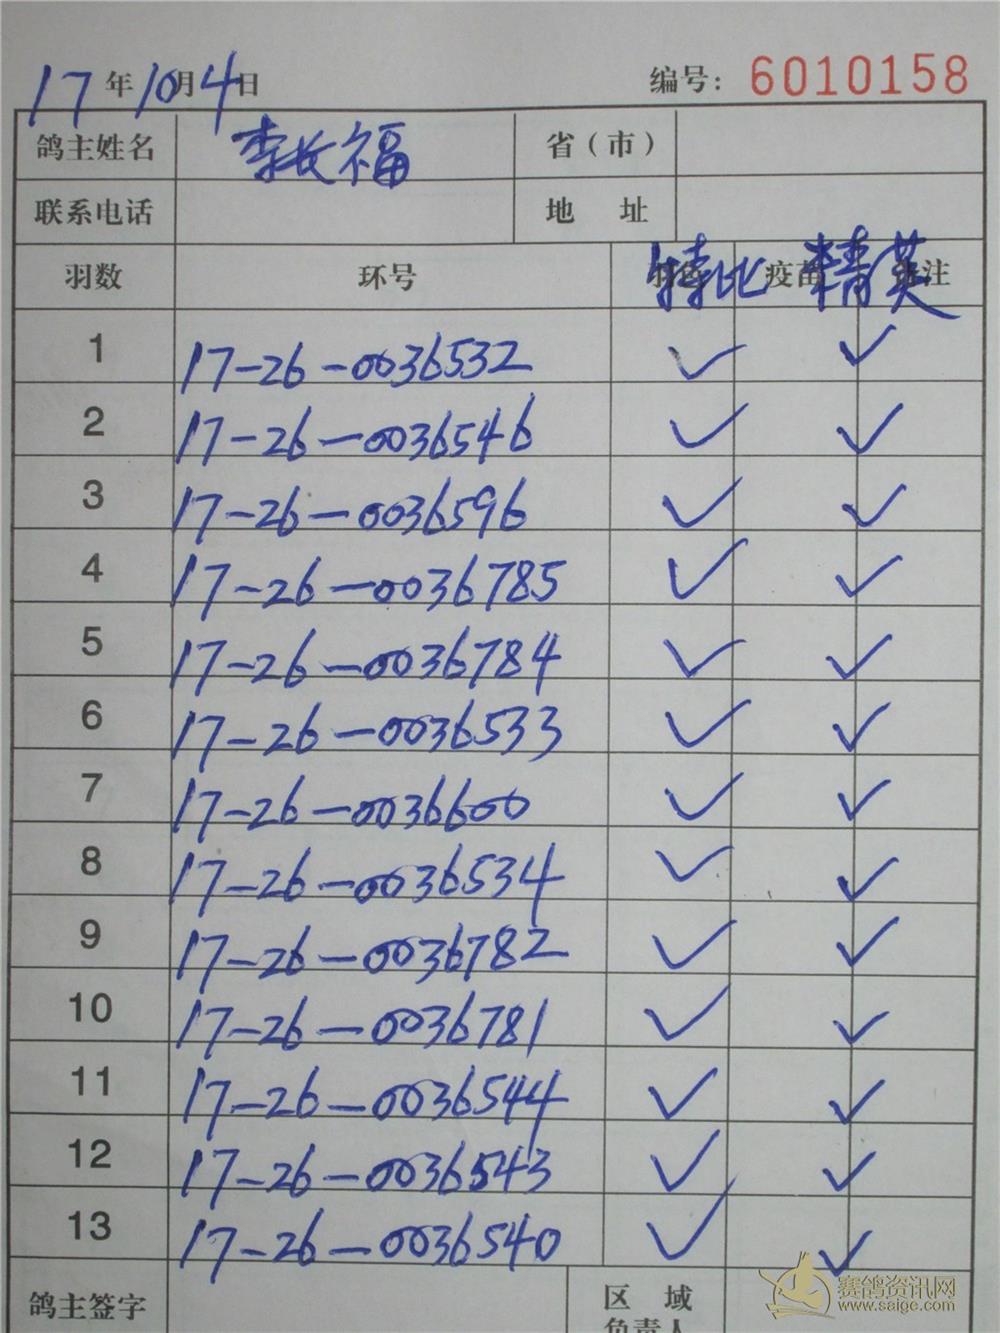 17年10月4日 编号: 6010158
鸽主姓名 李长福 省(市)
联系电话 地 址
羽数 环号 特比 疫苗 精英 注
1 17-26-0036532 ✓ ✓
2 17-26-0036546 ✓ ✓
3 17-26-0036596 ✓ ✓
4 17-26-0036785 ✓ ✓
5 17-26-0036784 ✓ ✓
6 17-26-0036533 ✓ ✓
7 17-26-0036600 ✓ ✓
8 17-26-0036534 ✓ ✓
9 17-26-0036782 ✓ ✓
10 17-26-0036781 ✓ ✓
11 17-26-0036544 ✓ ✓
12 17-26-0036543 ✓ ✓
13 17-26-0036540 ✓ ✓
鸽主签字 区 域
负责人
赛鸽资讯网
www.saige.com